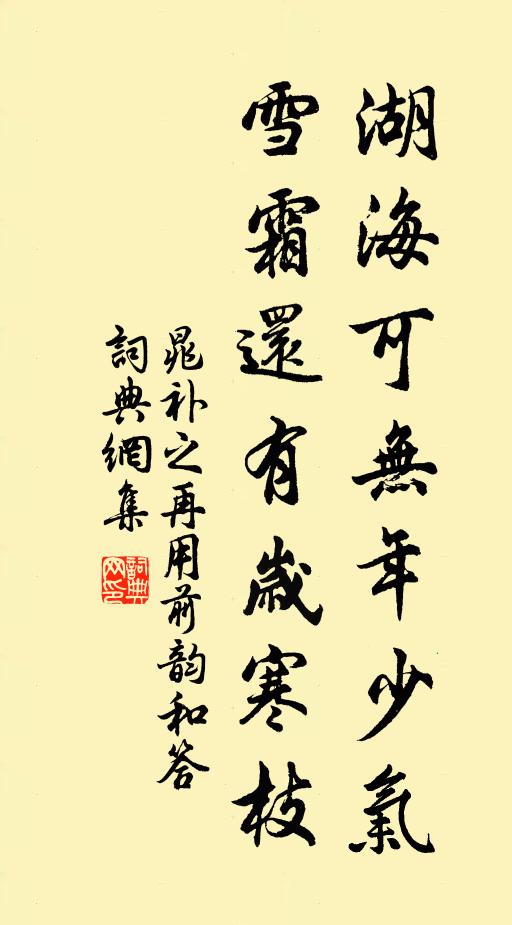 湖海可無年少氣
雪霜還有歲寒枝
晁补之再用前韵和答
詞典網集
詞典網印